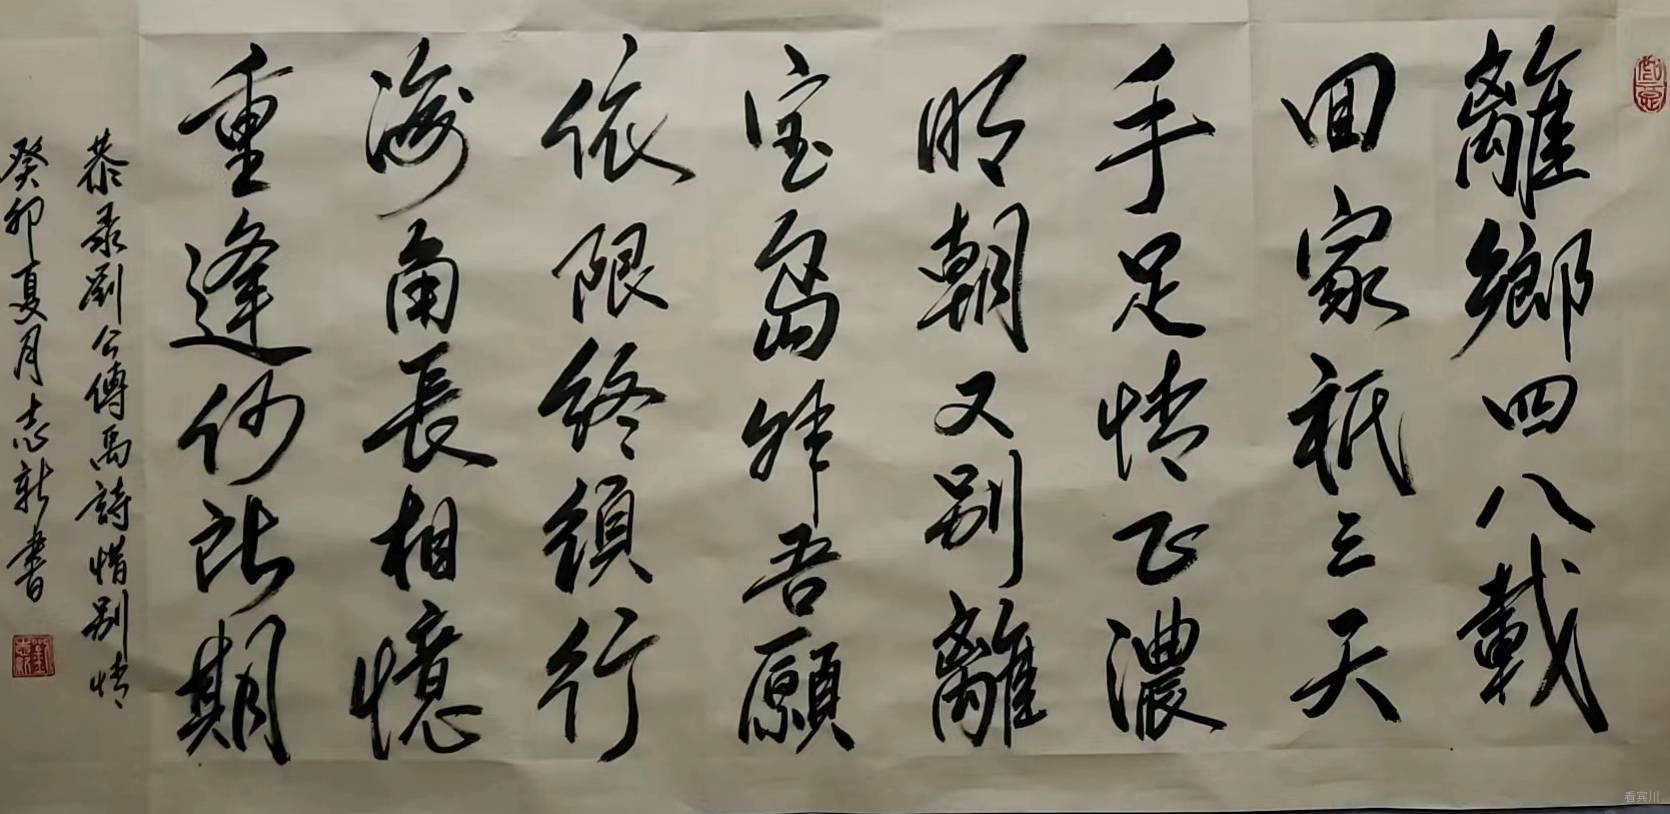 離鄉四八載
回家祇三天
手足情正濃
明朝又别離
宝島非吾願
依限終須行
海角長相憶
重逢何所期
恭录劉公傅禹詩惜别情
癸卯夏月志新書
看宾川